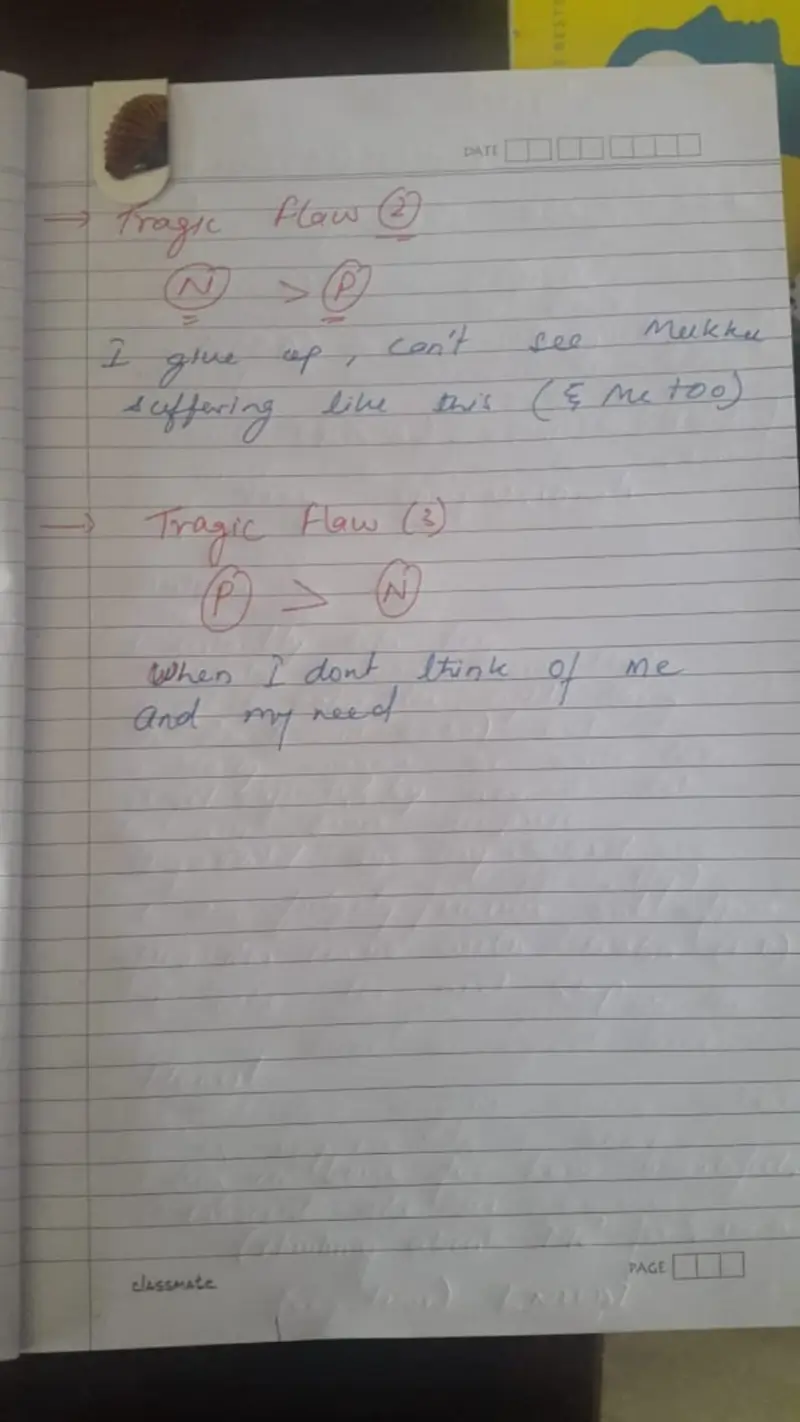 DATE
→ Tragic flaw ②
Ⓝ > Ⓟ
I give up, can't see Mukku
suffering like this (& Me too)
→ Tragic flaw (3)
Ⓟ > Ⓝ
When I dont think of me
and my need
classmate
PAGE